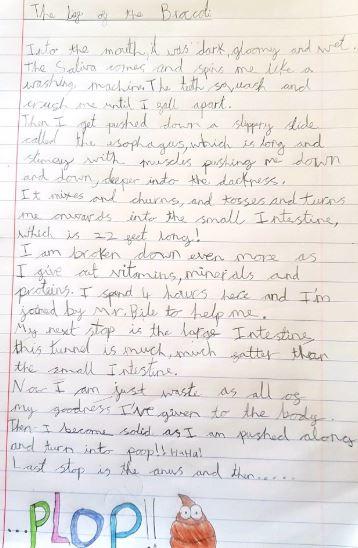 The log of the Brocoli
Into the mouth, it was dark, gloomy and wet.
The Saliva comes and spins me like a
washing machine. The teeth squash and
crush me until I fall apart.
Then I get pushed down a slippry slide
called the esophagus, which is long and
slimey with muscles pushing me down
and down, deeper into the darkness.
It mixes and churns, and tosses and turns
me onwards into the small Intestine,
which is 22 feet long!
I am broken down even more as
I give out vitamins, minerals and
proteins. I spend 4 hours here and I'm
joined by Mr. Bile to help me.
My next stop is the large Intestine
this tunnel is much, much fatter than
the small Intestine.
Now I am just waste as all of
my goodness I've given to the body.
Then I become solid as I am pushed along
and turn into poop!! HaHa!
Last stop is the anus and then.....
...PLOP!!